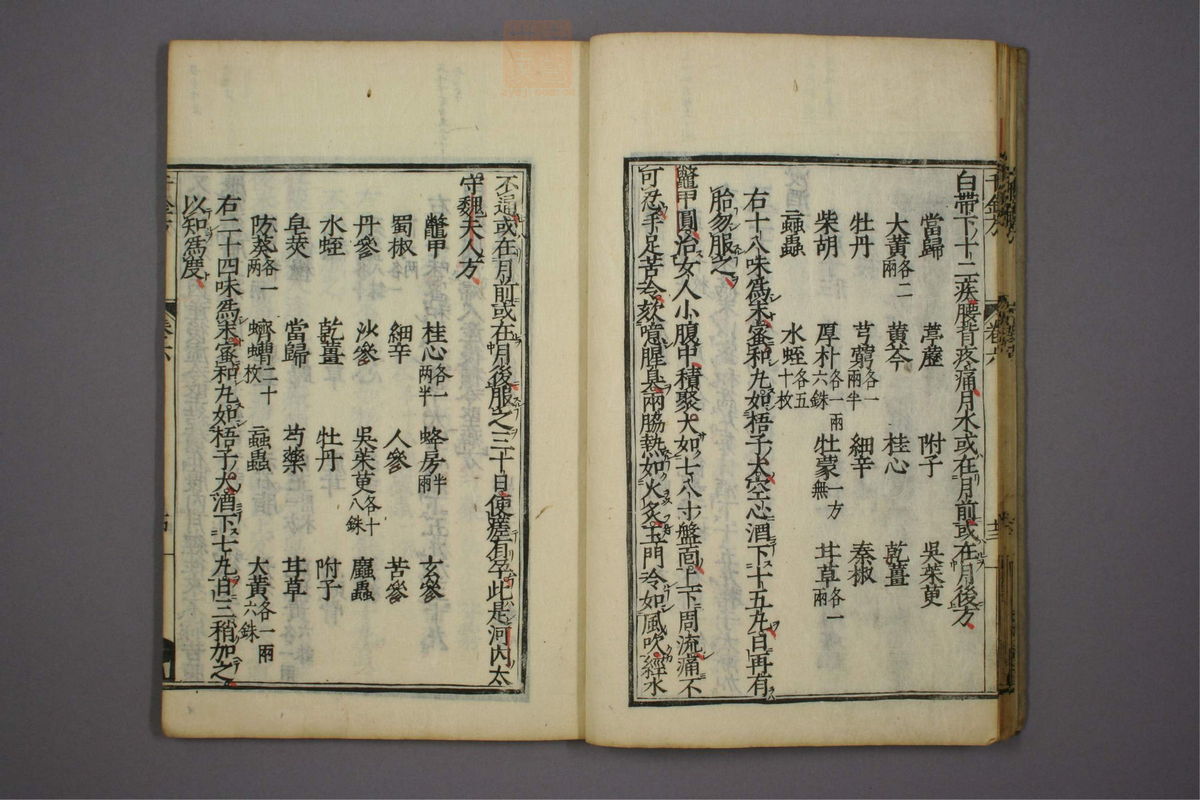 白帶下十二疾腰背疼痛月水或在月前或在月後方
當歸 葶藶 附子 吳茱萸
大黃各二兩 黃芩 桂心 乾薑
牡丹 芎藭各一兩半 細辛 秦椒
柴胡 厚朴各一兩六銖 牡蒙一方無 甘草各一兩
䗪蟲 水蛭各五十枚
右十八味爲末蜜和丸如梧子大空心酒下十五丸日再有
胎勿服之
鼈甲圓治女人小腹中積聚大如七八寸盤面上下周流痛不
可忍手足苦冷欬噫腥臭兩脇熱如火炙玉門冷如風吹經水
不通或在月前或在月後服之三十日便瘥有孕此是河內太
守魏夫人方
鼈甲 桂心各一兩半 蜂房半兩 玄參
蜀椒各一兩 細辛 人參 苦參
丹參 沙參 吳茱萸各十八銖 䗪蟲
水蛭 乾薑 牡丹 附子
皂莢 當歸 芍藥 甘草
防葵各一兩 蠐螬二十枚 蝱蟲 大黃各一兩六銖
右二十四味爲末蜜和丸如梧子大酒下七丸日三稍加之
以知爲度
卷六